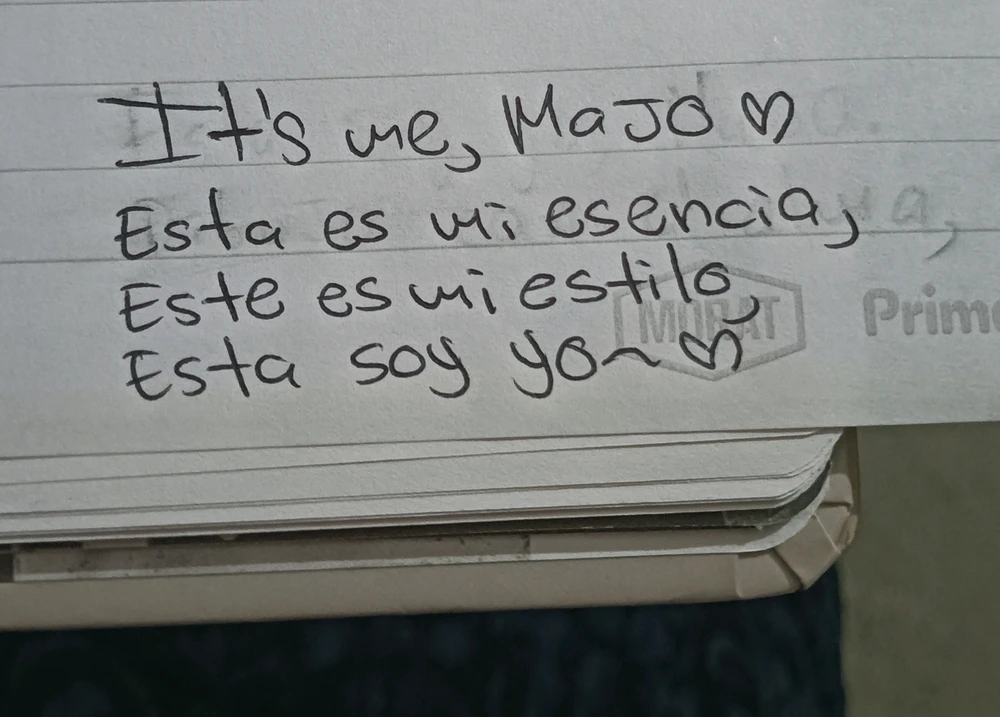 It's me, MaJO ♡
Esta es mi esencia,
Este es mi estilo,
Esta soy yo~♡
MORAT
Prim